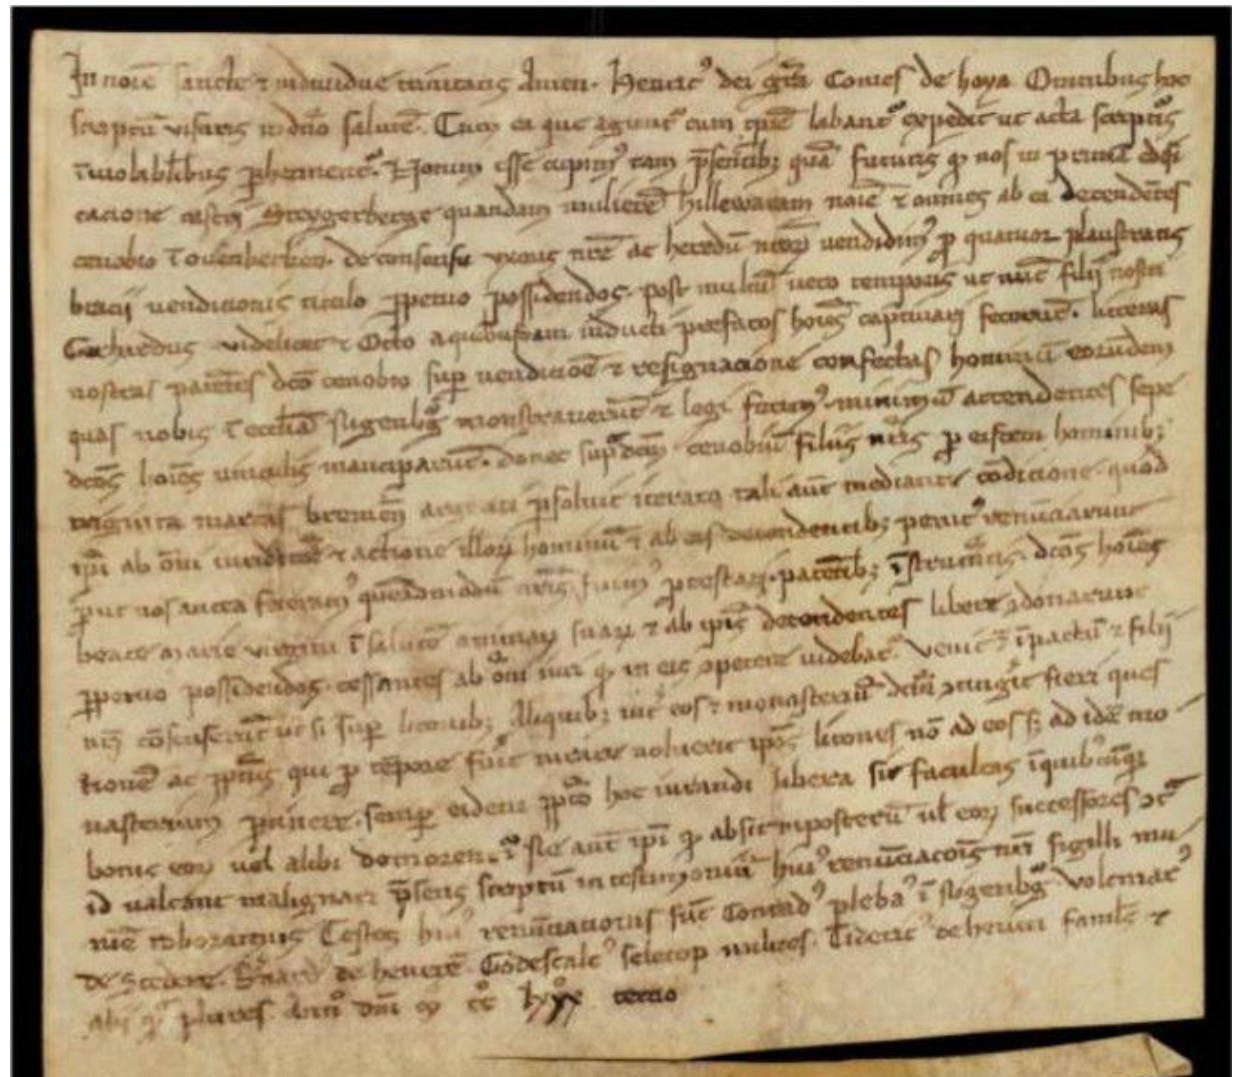 In noīe sancte ⁊ individue trinitatis Amen. Henric᷒ dei gr̄a Comes de hoya Omnibus hoc
scriptū visuris in dn̄o salutē. Cum ea que agunt᷑ cum tp̄re labant᷑ expedit ut acta scriptis
īviolabilibus ꝑhennent᷑. Notum esse cupim᷒ tam p̄sentib; quā futuris ꝙ nos in prima edifi
cacione castri Steygerberge quandam mulierē hillewaram noīe ⁊ omnes ab ea decendētes
cenobio de consensu uxoris nr̄e ac heredū nr̄oꝝ vendidim᷒ ꝓ quatuor plaustratis
bracii vendicionis titulo ꝑpetuo possidendos. post multū vero temporis ut nūc filii nostri
Gerhardus videlicet ⁊ Otto a quibusdam inducti prefatos hoīes captivari fecerūt. litteras
nostras patētes dc̄o cenobio suꝑ vendicōe ⁊ resignacione confectas hominū eorundem
quas nobis ī ecclīa stigenb͛g monstraverūt ⁊ legi fecim᷒. minime attendentes sepe
dc̄os hoīes vinculis manciparūt. donec sup͛dcm̄ cenobiū filiis nr̄is ꝓ eisdem hominib;
viginti marcas bremen̄ argenti ꝑsolvit iterato tali aūt mediante cōdicione. quod
ip̄i ab om̄i iurisdictōe ⁊ actione illoꝝ hominū ⁊ ab eis decendentib; penit᷒ renūciarunt
ꝓut nos antea feceram᷒ quēadmodū nr̄is sum᷒ ꝓtestati. patētib; īstrumētis. dc̄os hoīes
beate Marie virgini ī salutē animaꝝ suaꝝ ⁊ ab ip̄is decendentes libere ꝯdonarunt
ꝑpetuo possidendos. cessantes ab om̄i iure ꝙ in eis ꝯpetere videbat᷑. ⁊ filii
nr̄i cōsenserūt ut si suꝑ litonib; aliquib; int͛ eos ⁊ monasteriū dc̄m ꝯtingit fieri ques
tionē ac p̄positus qui ꝓ tēpore fuit iurare voluerit ip̄os litones nō ad eos s; ad idē mo
nasterium ꝑtinere. semꝑ eidem p̄posito hoc iurandi libera sit facultas ī quibuscūq;
bonis eoꝝ vel alibi domorent᷑. ⁊ ne aūt ip̄i ꝙ absit inposterū vl̄ eoꝝ successores ꝯt͛
id valeant malignari p̄sens scriptū in testimoniū hui᷒ renūciacōis nr̄i sigilli mu
nīe roboramus Testes hui᷒ renūciacionis sūt Conrad᷒ pleban᷒ ī stigenb͛g volcmar᷒
de Stedere. de Godescalc᷒ seletop milites. Tideric᷒ de famlī ⁊
alii ꝙ͛ plures Anno dn̄i mͦ ccͦ lxxxͦ tercio